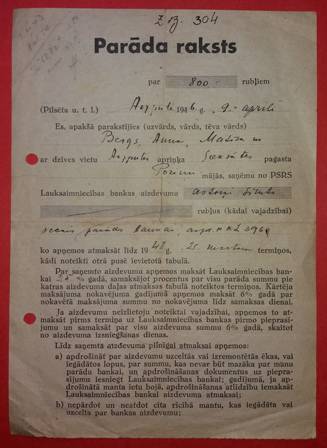 304
Parāda raksts
par 800 rubļiem
(Pilsēta u. t. t.) 1946 g. 9. aprīlī
Es, apakšā parakstījies (uzvārds, vārds, tēva vārds)
Bergs, Anna,
ar dzīves vietu Aizputes apriņķa pagasta
mājās, saņēmu no PSRS
Lauksaimniecības bankas aizdevuma astoņi simti
rubļus (kādai vajadzībai)
ko apņemos atmaksāt līdz 1948 g. 25. termiņos,
kādi noteikti otrā pusē ievietotā tabulā.
Par saņemto aizdevumu apņemos maksāt Lauksaimniecības ban-
kai % gadā, samaksājot procentus par visu parāda summu pie
katras aizdevuma daļas atmaksas tabulā noteiktos termiņos. Kārtējā
maksājuma nokavējuma gadījumā apņemos maksāt 6% gadā par
nokavētā maksājuma summu no nokavējuma dienas līdz samaksai.
Ja aizdevumu neizlietoju noteiktai vajadzībai, apņemos to at-
maksāt pirms termiņa uz Lauksaimniecības bankas pirmo pieprasī-
jumu un samaksāt par visu aizdevuma summu 6% gadā, skaitot
no aizdevuma izsniegšanas dienas.
Līdz saņemtā aizdevuma pilnīgai atmaksai apņemos:
a) apdrošināt par aizdevumu uzceltās vai izremontētās ēkas, vai
iegādātos lopus, par summu, kas nevar būt mazāka par manu
parādu bankai, un apdrošināšanas dokumentus uz bankas pie-
prasījumu iesniegt Lauksaimniecības bankai; gadījumā, ja ap-
drošinātā manta ietu bojā, apdrošināšanas atlīdzību iemaksāt
Lauksaimniecības bankai aizdevuma atmaksai;
b) nepārdot un neatdot cita rīcībā mantu, kas iegādāta vai
uzcelta par bankas aizdevumu;